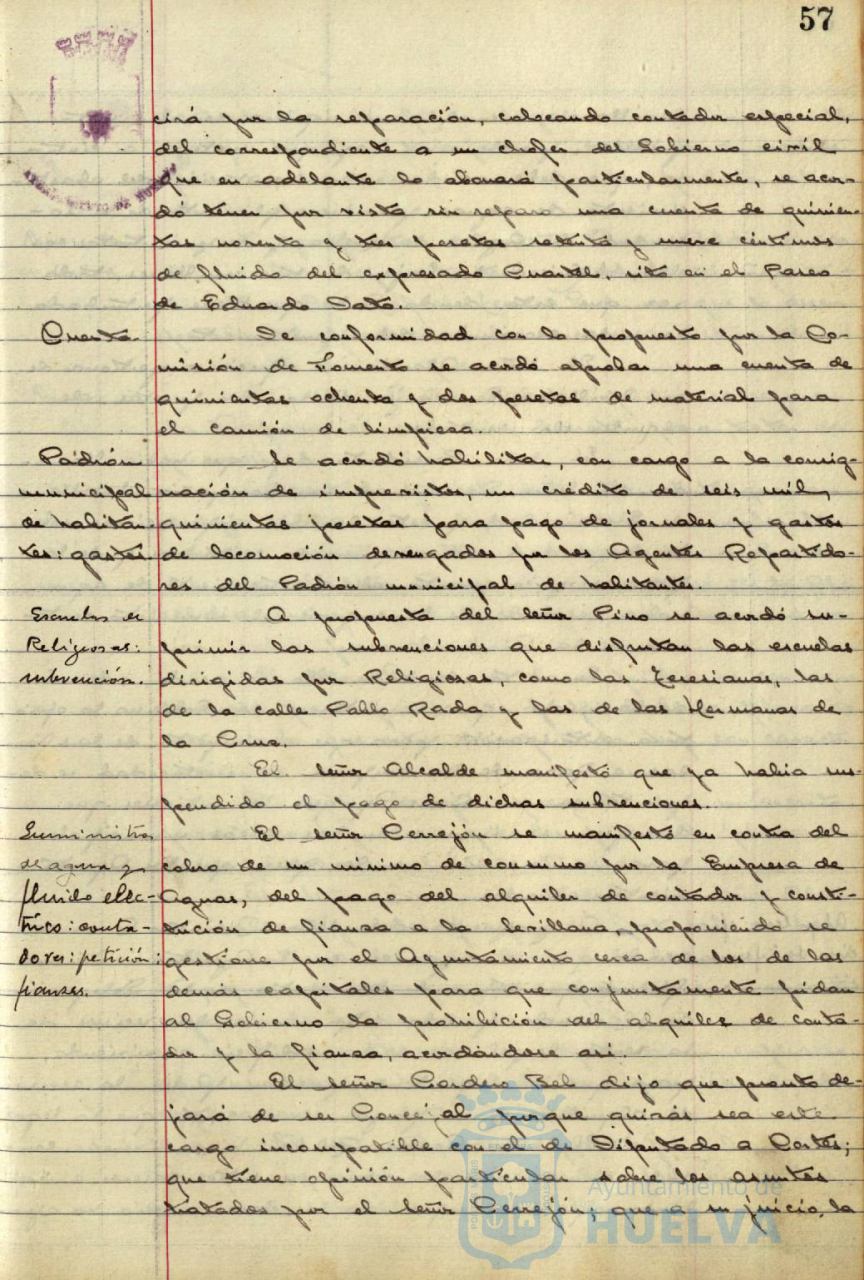 57
AYUNTAMIENTO DE HUELVA
cirá por la reparación, colocando contador especial,
del correspondiente a un chofer del Gobierno civil
que en adelante lo abonará particularmente, se acor-
dó tener por vista sin reparo una cuenta de quinien-
tas noventa y tres pesetas setenta y nueve céntimos
de fluido del expresado Cuartel, sito en el Paseo
de Eduardo Dato.
Cuenta.
De conformidad con lo propuesto por la Co-
misión de Fomento se acordó aprobar una cuenta de
quinientas ochenta y dos pesetas de material para
el camión de limpieza.
Padrón
municipal
de habitan-
tes: gastos.
Se acordó habilitar, con cargo a la consig-
nación de imprevistos, un crédito de seis mil
quinientas pesetas para pago de jornales y gastos
de locomoción devengados por los Agentes Repartido-
res del Padrón municipal de habitantes.
Escuelas de
Religiosas:
subvención.
A propuesta del señor Pino se acordó su-
primir las subvenciones que disfrutan las escuelas
dirigidas por Religiosas, como las Teresianas, las
de la calle Pablo Rada y las de las Hermanas de
la Cruz.
El señor Alcalde manifestó que ya había sus-
pendido el pago de dichas subvenciones.
Suministro
de agua y
fluido eléc-
trico: conta-
dores: petición:
fianzas.
El señor Cerrejón se manifestó en contra del
cobro de un mínimo de consumo por la Empresa de
Aguas, del pago del alquiler de contador y consti-
tución de fianza a la Sevillana, proponiendo se
gestione por el Ayuntamiento cerca de los de las
demás capitales para que conjuntamente pidan
al Gobierno la prohibición del alquiler de conta-
dor y la fianza, acordándose así.
El señor Cordero Bel dijo que pronto de-
jará de ser Concejal porque quizás sea este
cargo incompatible con el de Diputado a Cortes;
que tiene opinión particular sobre los asuntos
tratados por el señor Cerrejón; que a su juicio, la
Ayuntamiento de
HUELVA